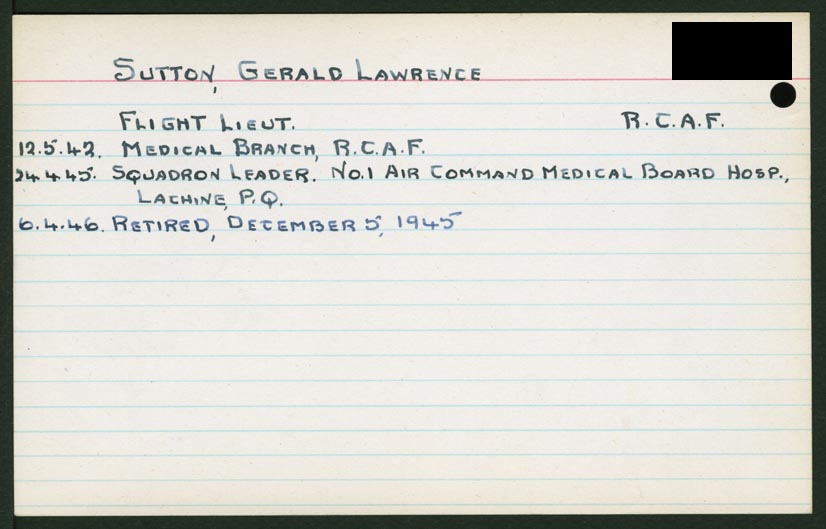 SUTTON, GERALD LAWRENCE
FLIGHT LIEUT. R.C.A.F.
12.5.42. MEDICAL BRANCH, R.C.A.F.
24.4.45. SQUADRON LEADER. NO.1 AIR COMMAND MEDICAL BOARD HOSP.,
LACHINE, P.Q.
6.4.46. RETIRED, DECEMBER 5, 1945